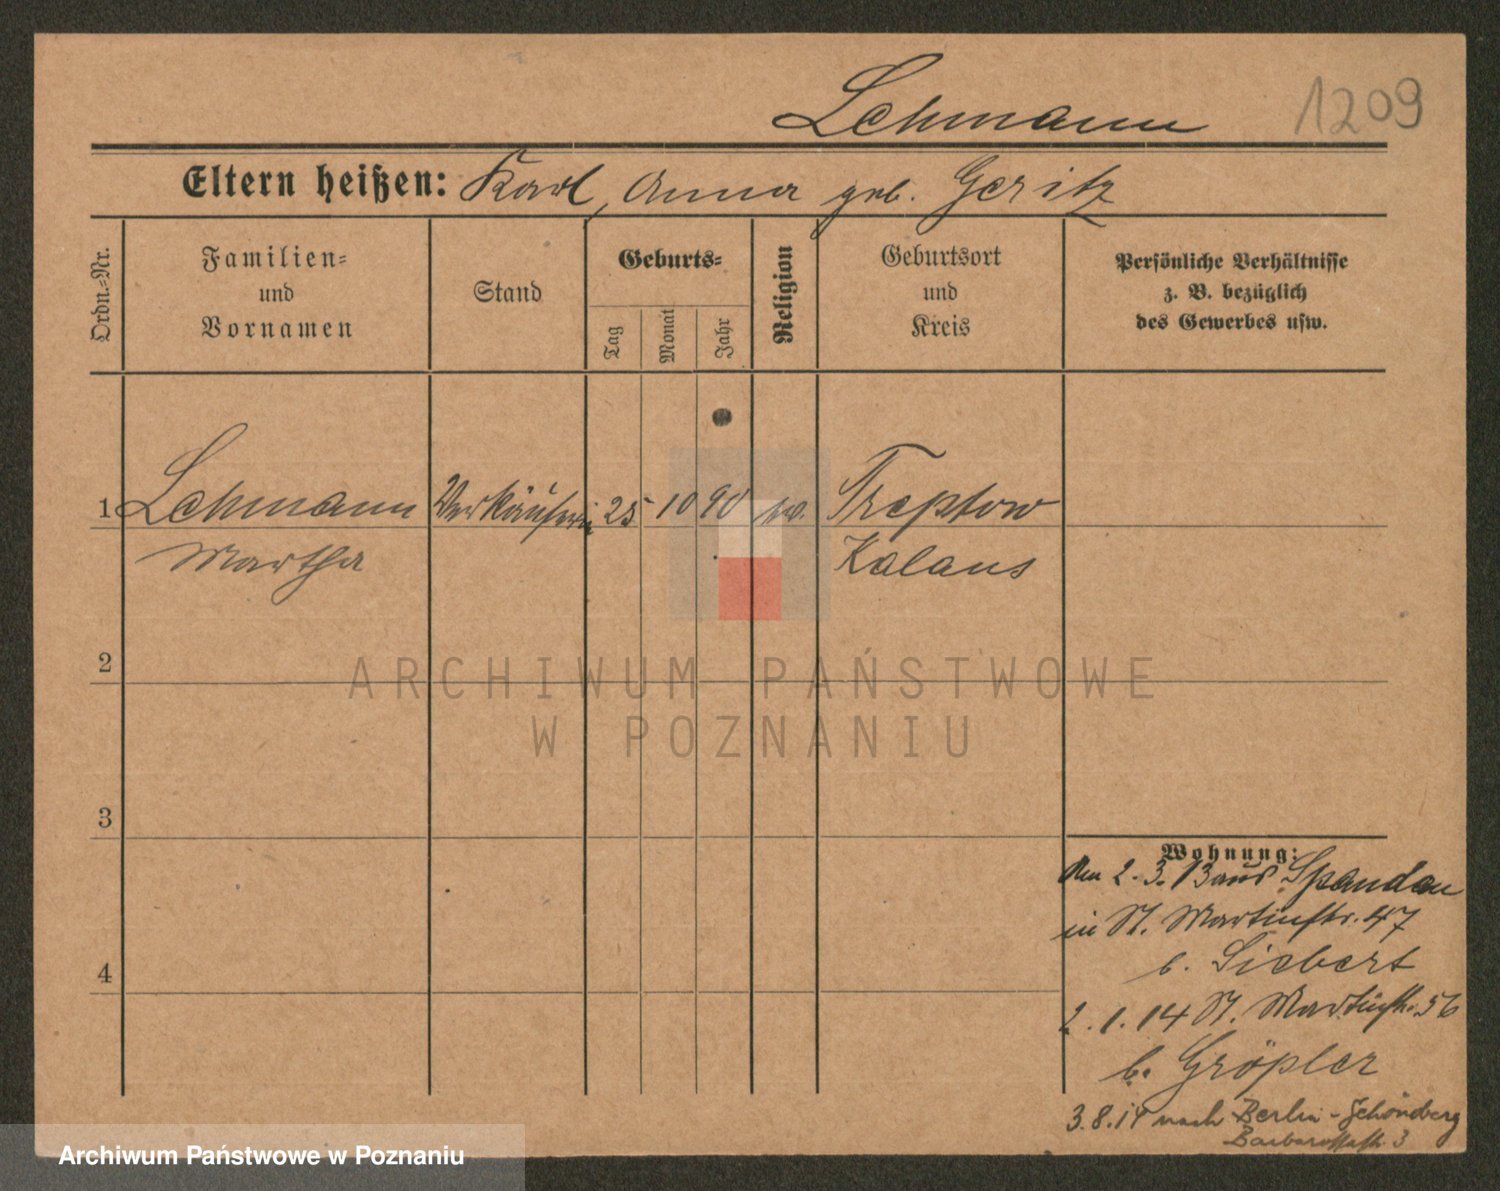 Lehmann 1209
Eltern heißen: Karl, Anna geb. Geritz
Ordn.-Nr.
Familien-
und
Vornamen
Stand
Geburts-
Tag
Monat
Jahr
Religion
Geburtsort
und
Kreis
Persönliche Verhältnisse
z. B. bezüglich
des Gewerbes usw.
1 Lehmann Verkäuferin 25 10 90 ev. Treptow
Martha Kalaus
2
ARCHIWUM PAŃSTWOWE
W POZNANIU
3
Wohnung:
Den 2.3.13 aus Spandau
in St. Martinstr. 47
b. Siebert
4
2.1.14 St. Martinstr. 56
b. Gröpler
3.8.14 nach Berlin-Schöneberg
Barbarossastr. 3
Archiwum Państwowe w Poznaniu